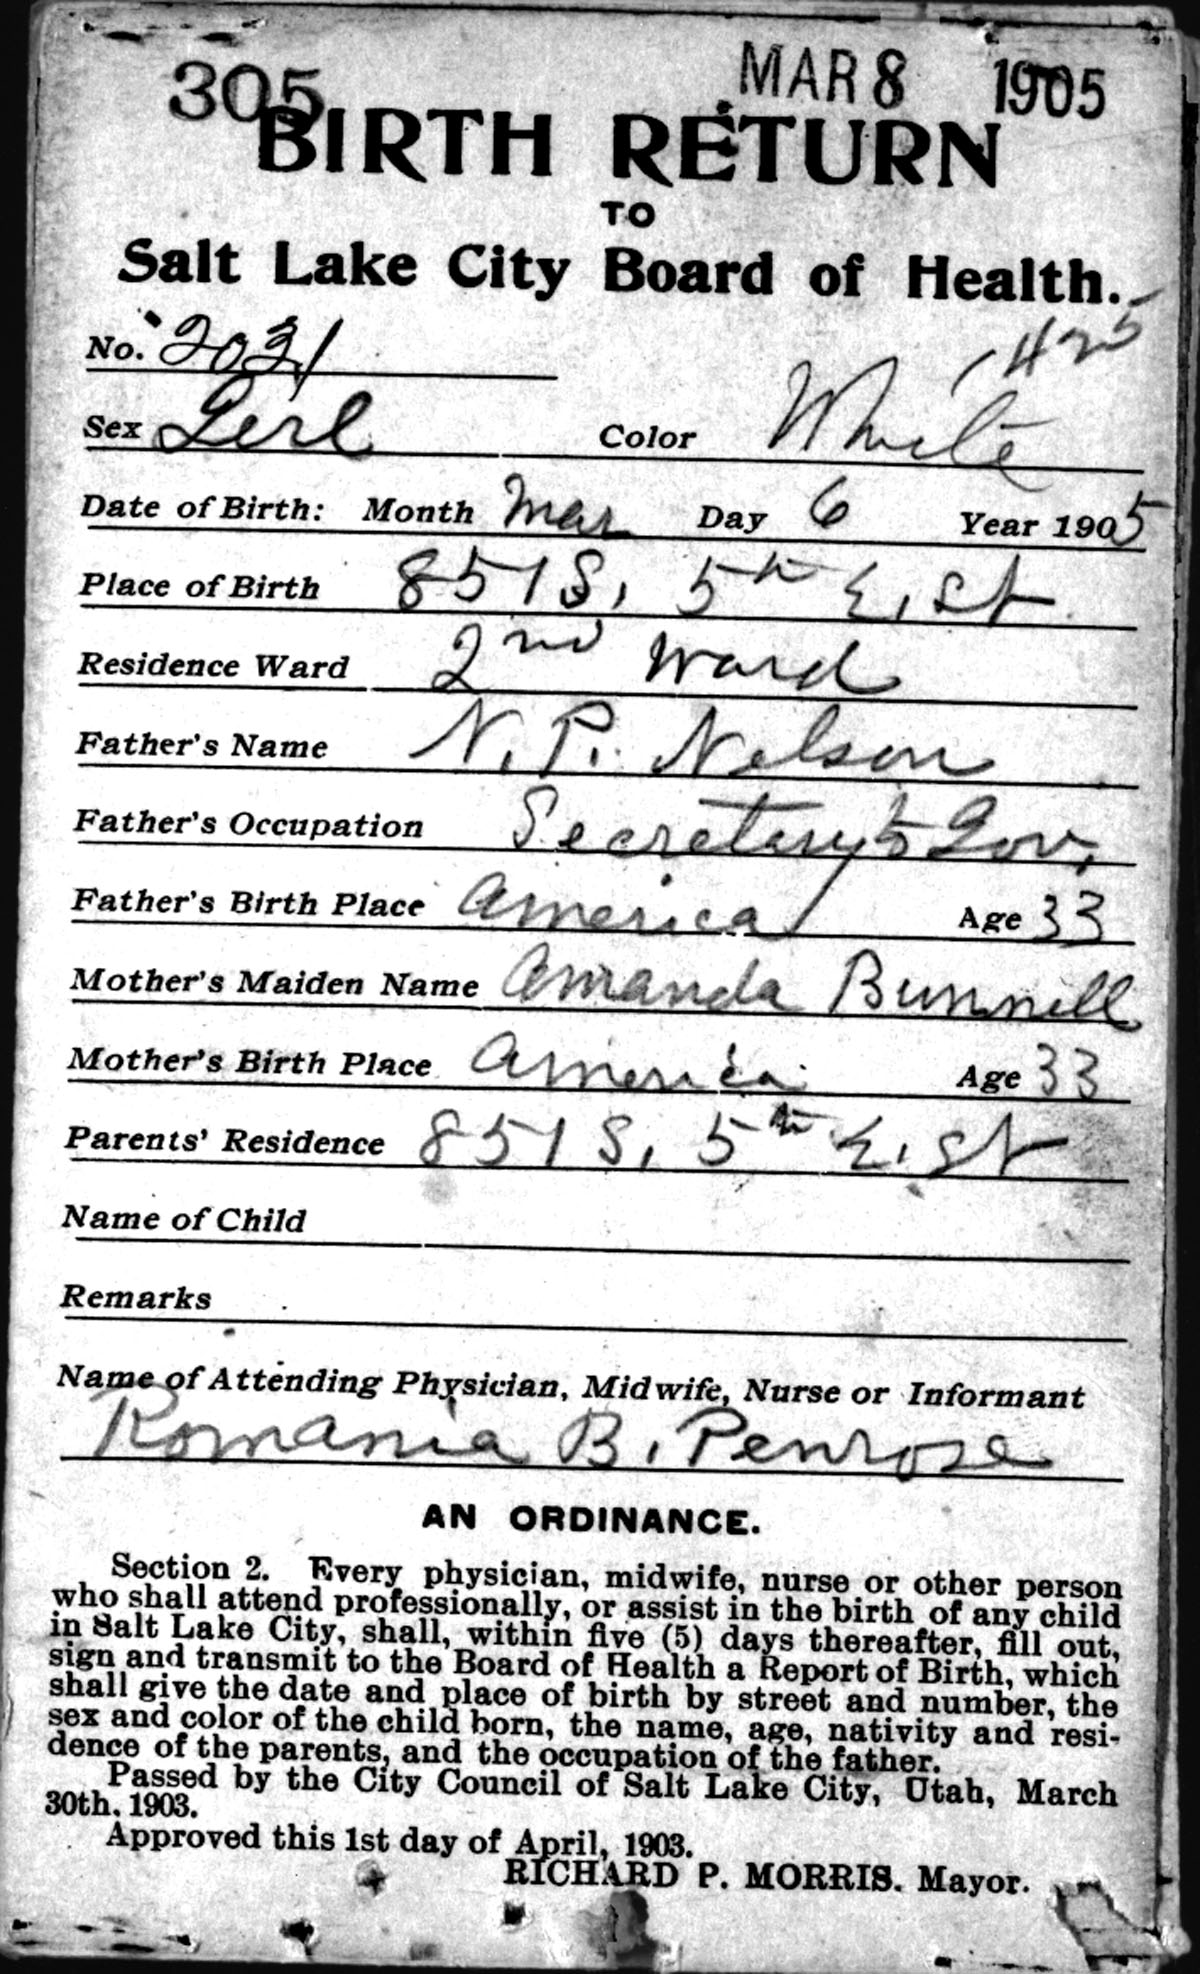 305 MAR 8 1905
BIRTH RETURN
TO
Salt Lake City Board of Health.
No. 2031 1425
Sex Girl Color White
Date of Birth: Month Mar Day 6 Year 1905
Place of Birth 851 S. 5th E. St
Residence Ward 2nd Ward
Father's Name N. P. Nelson
Father's Occupation Secretary to Gov.
Father's Birth Place America Age 33
Mother's Maiden Name Amanda Bunnell
Mother's Birth Place America Age 33
Parents' Residence 851 S. 5th E. St
Name of Child
Remarks
Name of Attending Physician, Midwife, Nurse or Informant
Romania B. Penrose
AN ORDINANCE.
Section 2. Every physician, midwife, nurse or other person
who shall attend professionally, or assist in the birth of any child
in Salt Lake City, shall, within five (5) days thereafter, fill out,
sign and transmit to the Board of Health a Report of Birth, which
shall give the date and place of birth by street and number, the
sex and color of the child born, the name, age, nativity and resi-
dence of the parents, and the occupation of the father.
Passed by the City Council of Salt Lake City, Utah, March
30th, 1903.
Approved this 1st day of April, 1903.
RICHARD P. MORRIS. Mayor.